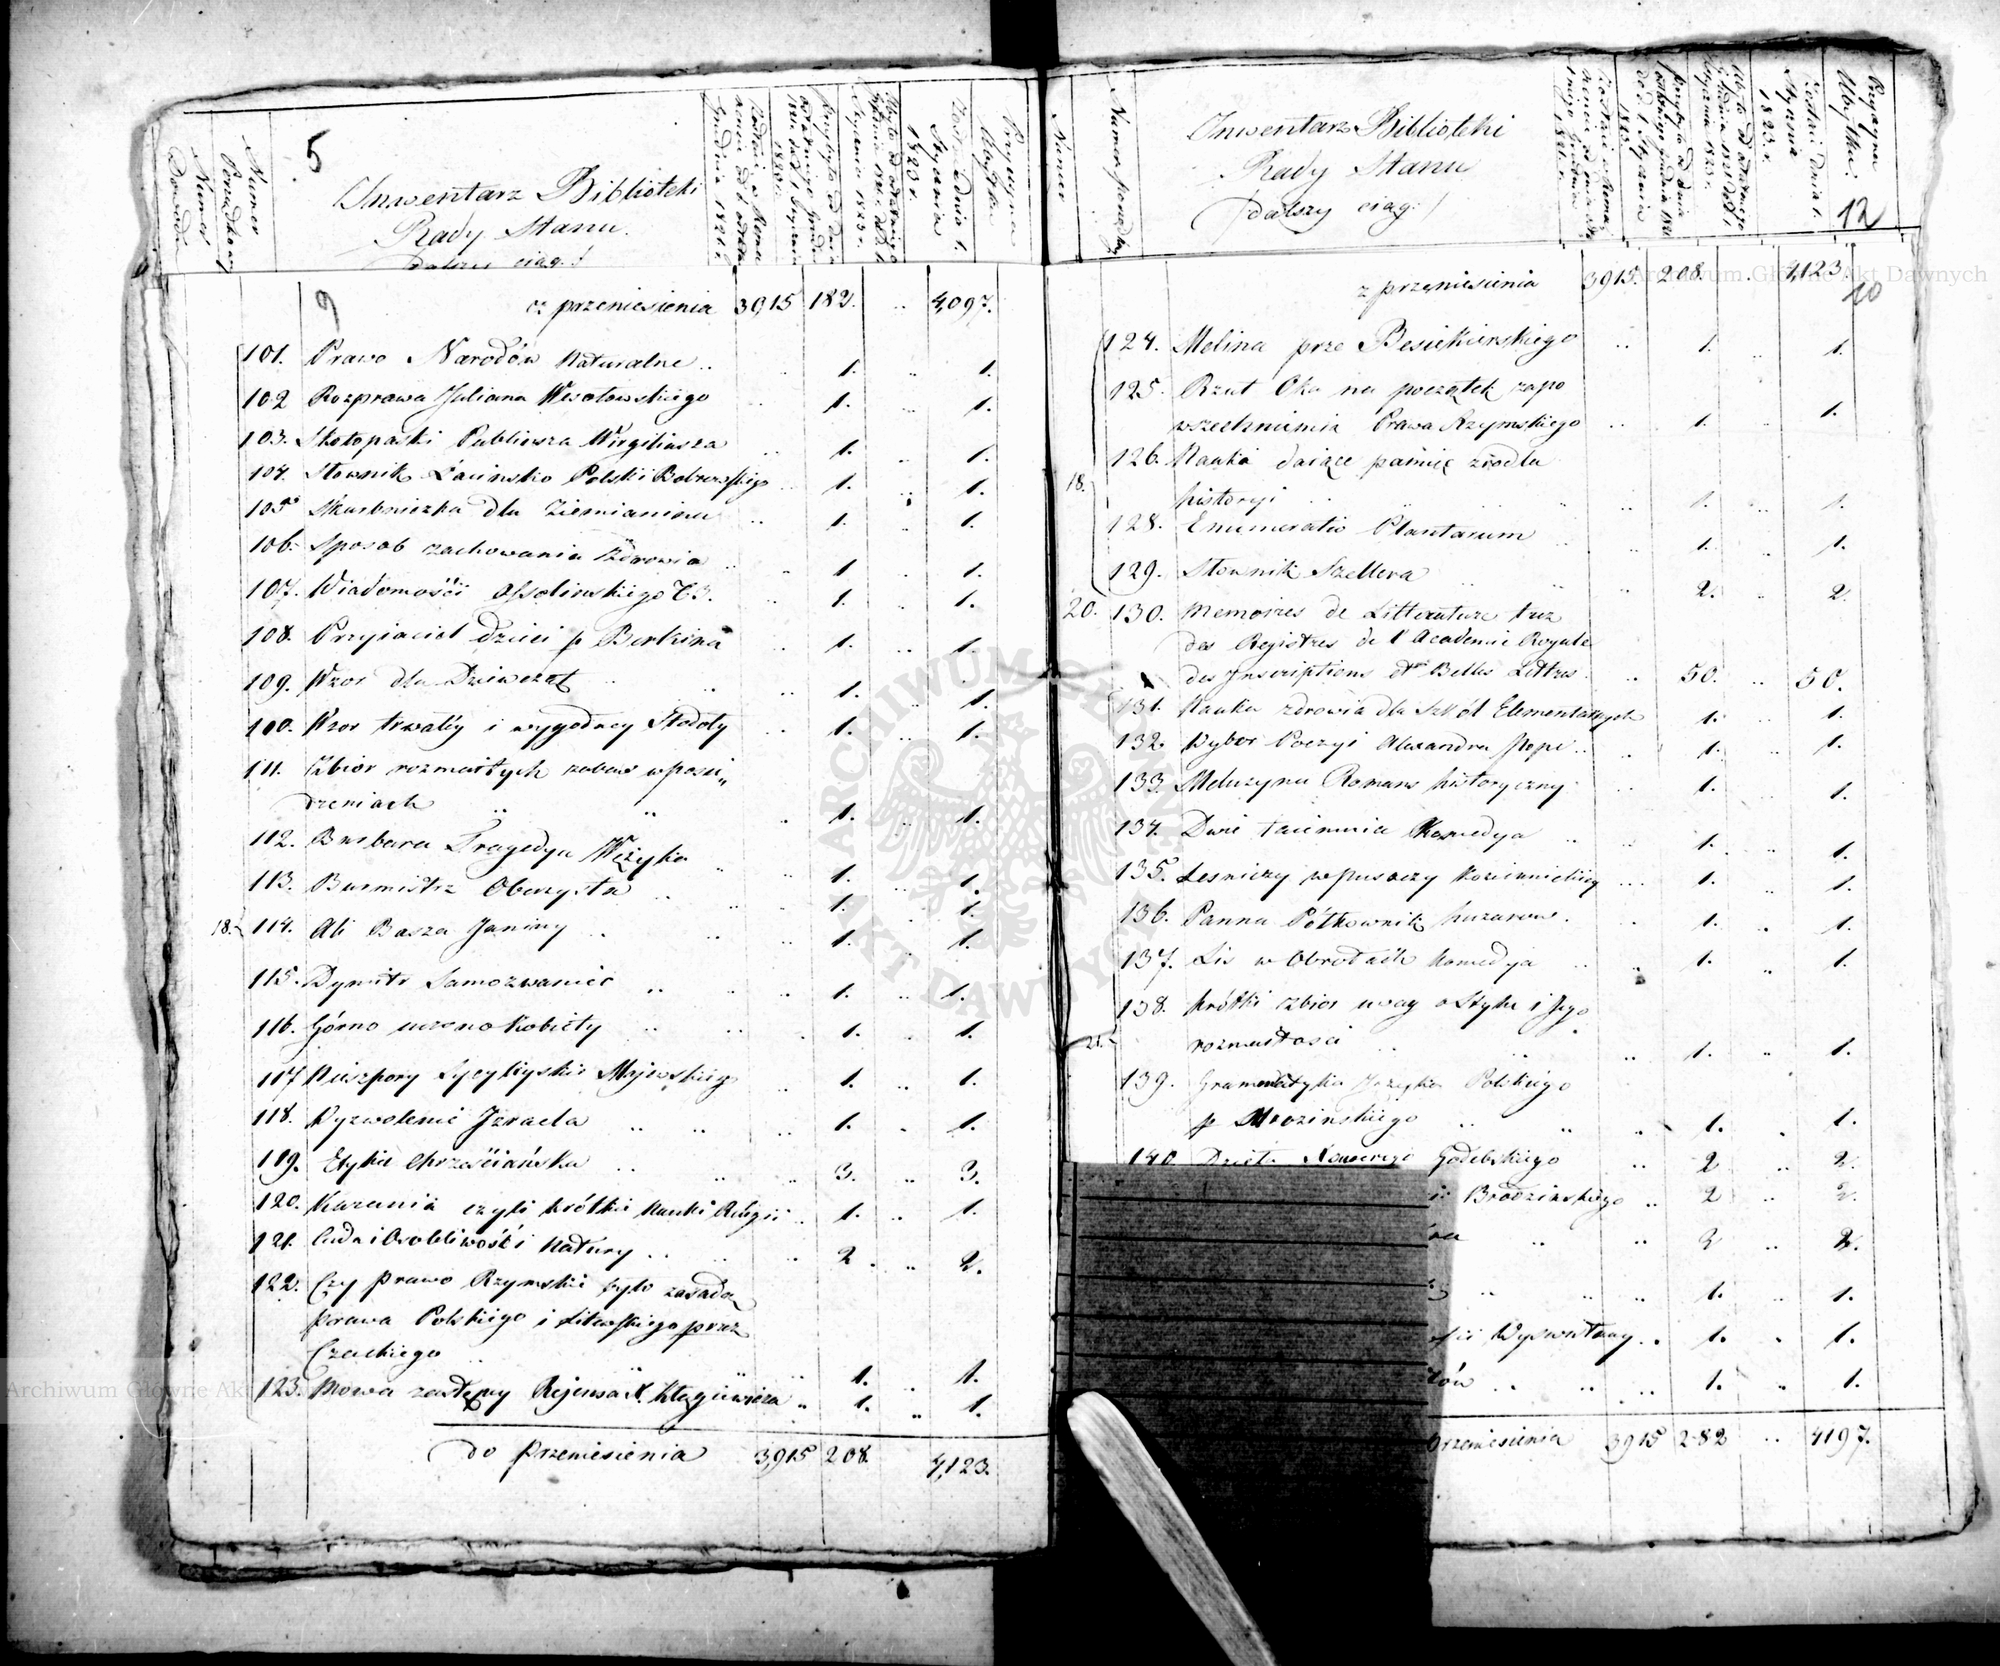 5
Numer Dowodu
Numer Porządkowy
Inwentarz Biblioteki
Rady Stanu
dalszy ciąg
Zostało dnia 1. Stycznia 1823 r.
Przyczyna Ubytku
9
z przeniesienia 3915 182. .. 4,097.
101. Prawo Narodów Naturalne .. .. 1. .. 1.
102 Rozprawa Juliana Wesołowskiego .. 1. .. 1.
103. Skotopaski Publiusza Wirgiliusza .. 1. .. 1.
104. Słownik Łacinsko Polski Bobrowskiego .. 1. .. 1.
105 Skarbniczka dla Ziemianina .. 1. .. 1.
106. Sposob zachowania Zdrowia .. .. 1 .. 1.
107. Wiadomości Ossolinskiego T3. .. 1. .. 1.
108. Przyiaciel dzieci p Berkina .. 1. .. 1.
109. Wzor dla Dziewcząt .. .. .. 1. .. 1.
100. Wzor trwałey i wygodney Stodoły .. 1. .. 1.
111. Zbior rozmaitych zabaw w posie„
dzeniach .. .. .. 1. .. 1.
112. Barbara Tragedya Wężyka .. .. 1. .. 1.
113. Burmistrz Oberzysta .. .. .. 1. . 1.
18. 114. Ali Basza Janiny .. .. .. 1. .. 1.
115. Dymitr Samozwaniec .. .. .. 1. .. 1.
116. Górno uczone Kobiety .. .. . 1. . 1.
117 Nieszpory Sycyliyskie Majewskieg .. 1. .. 1.
118. Wyzwolenie Izraela .. .. .. 1. . 1.
119. Etyka Chrześciańska .. .. .. 3. .. 3.
120. Kazania czyli krótkie Nauki Religii .. 1. .. 1.
121. Cuda i Osobliwości Natury .. .. .. 2 . .. 2.
122. Czy prawo Rzymskie było zasadą
prawa Polskiego i Litewskiego przez
Czackiego .. .. .. 1. .. 1.
123. Mowa zastępcy Rejensa X. Kłągiewicza .. 1. .. 1.
do przeniesienia 3,915 208. 4,123.
Numer
Numer porządkowy
Inwentarz Biblioteki
Rady Stanu
/dalszy ciąg./
Zostało dnia 1. Stycznia 1823. r.
Przyczyna Ubytku.
12
z przeniesienia 3915. 208. .. 4,123.
10
124. Melina prze Besiekierskiego .. 1. .. 1.
125. Rzut Oka na początek zapo
wszechnienia Prawa Rzymskiego .. 1. .. 1.
126. Nauka daiące źrodła
18.
historyi .. .. .. 1. .. 1.
128. Enumeratio Plantarum .. .. 1. .. 1.
129. Słownik Szellera .. .. .. 2. .. 2.
20. 130. Memoires de Litterature tire
des Registres de l'Academie Royale
des Inscriptions et Belles Lettres. .. 50. .. 50.
131. Nauka zdrowia dla Szkół Elementarnych 1. .. 1.
132. Wybor Poezyi Alexandra Pope .. .. 1. .. 1.
133. Meluzyna Romans historyczny .. 1. .. 1.
134. Dwie taiemnice Komedya .. .. 1. .. 1.
135. Lesniczy w puszczy Kozienickiey ... 1. .. 1.
136. Panna Półkownik huzarow. .. 1. . 1.
137. Lis w Obrotach Komedya .. .. 1. .. 1.
138. Krótki zbior uwag o Stylu i Jego
21. rozmaitosci .. .. .. 1. .. 1.
139. Grammatyka Języka Polskiego
p Mrozinskiego .. .. .. 1. . 1.
140 Dzieła Xawerego Godebskiego .. 2 .. 2.
Brodzinskiego .. 2 .. 2.
.. .. 2.
.. .. .. 1. .. 1.
.. 1. . 1.
.. .. .. 1. . 1.
Przeniesienia 3915 282 .. 4197.
Archiwum Główne Akt Dawnych
ARCHIWUM GŁÓWNE AKT DAWNYCH
Archiwum Główne Akt